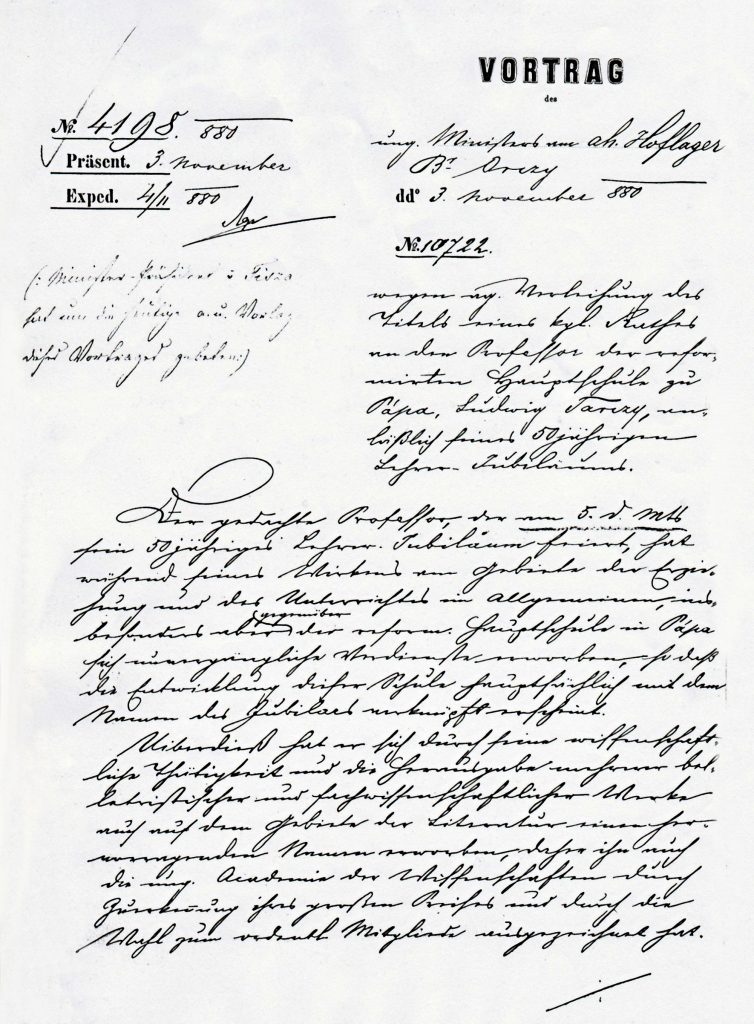 VORTRAG
des
ung. Ministers am ah. Hoflager
Br Orczy
ddo 3. November 880
№ 10722.
№ 4198. 880
Präsent. 3. November
Exped. 4/11 880
(: Minister-Präsident v Tisza
hat um die heutige a.u. Vorlage
dieses Vortrages gebeten:)
wegen ag. Verleihung des
Titels eines kgl. Rathes
an den Professor der refor-
mirten Hauptschule zu
Pápa, Ludwig Tarczy, an-
läßlich seines 50jährigen
Lehrer-Jubiläums.
Der gedachte Professor, der am 5. d. Mts
sein 50jähriges Lehrer-Jubiläum feiert, hat
während seines Wirkens am Gebiete der Erzie-
hung und des Unterrichtes im Allgemeinen, ins-
besonders aber gegenüber der reform. Hauptschule in Pápa
sich unvergängliche Verdienste erworben, so daß
die Entwicklung dieser Schule hauptsächlich mit dem
Namen des Jubilars verknüpft erscheint.
Uiberdieß hat er sich durch seine wissenschaft-
liche Thätigkeit und die Herausgabe mehrerer bel-
letristischer und fachwissenschaftlicher Werke
auch auf dem Gebiete der Literatur einen her-
vorragenden Namen erworben, daher ihn auch
die ung. Academie der Wissenschaften durch
Zuerkennung ihres großen Preises und durch die
Wahl zum ordentl Mitgliede ausgezeichnet hat.